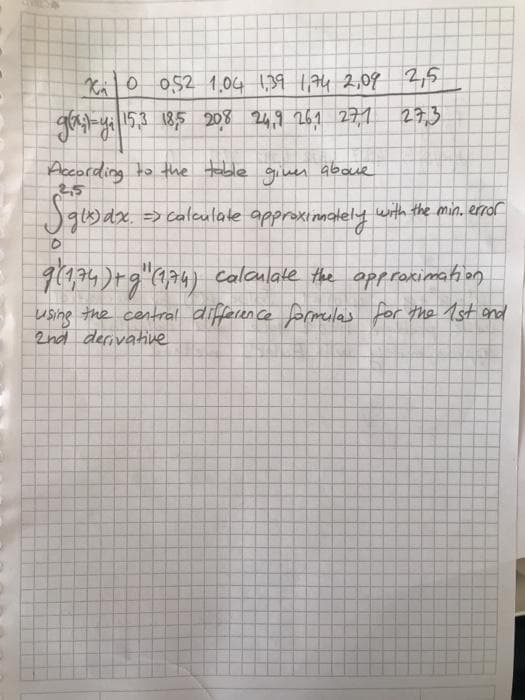 xi | 0 0,52 1.04 1,39 1,74 2,09 2,5
g(xi)=yi | 15,3 18,5 20,8 24,9 26,1 27,1 27,3
According to the table given above
2,5
∫ g(x) dx. => calculate approximately with the min. error
0
g'(1,74) + g''(1,74) calculate the approximation
using the central difference formulas for the 1st and
2nd derivative